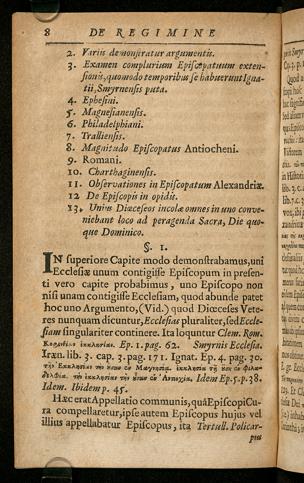 8 DE REGIMINE
2. Variis demonstratur argumentis.
3. Examen complurium Episcopatuum exten-
sionis, quomodo temporibus se habuerunt Igna-
tii, Smyrnensis puta.
4. Ephesini.
5. Magnesianensis.
6. Philadelphiani.
7. Tralliensis.
8. Magnitudo Episcopatus Antiocheni.
9. Romani.
10. Charthaginensis.
11. Observationes in Episcopatum Alexandriæ.
12 De Episcopis in opidis.
13. Unius Diœceseos incolæ omnes in uno conve-
niebant loco ad peragenda Sacra, Die quo-
que Dominico.
§. 1.
IN superiore Capite modo demonstrabamus, uni
Ecclesiæ unum contigisse Episcopum in presen-
ti vero capite probabimus, uno Episcopo non
nisi unam contigisse Ecclesiam, quod abunde patet
hoc uno Argumento, (Vid.) quod Diœceses Vete-
res nunquam dicuntur, Ecclesiæ pluraliter, sed Eccle-
siam singulariter continere. Ita loquntur Clem. Rom.
Ep. 1. pag. 62. Smyrnis Ecclesia.
Iræn. lib. 3. cap. 3. pag. 171. Ignat. Ep. 4. pag. 30.
Idem Ep. 5. p. 38.
Idem. Ibidem p. 45.
Hæc erat Appellatio communis, quâ Episcopi Cu-
ra compellaretur, ipse autem Episcopus hujus vel
illius appellabatur Episcopus, ita Tertull. Policar-
pus